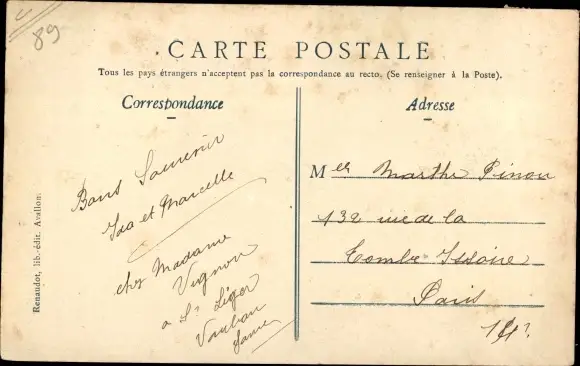 89
CARTE POSTALE
Tous les pays étrangers n'acceptent pas la correspondance au recto. (Se renseigner à la Poste).
Correspondance
Bons Souvenir
Isa et Marcelle
chez Madame
Vignon
a St Léger
Vauban
Yonne
Renaudot, lib.-édit. Avallon.
Adresse
Melle Marthe Pinon
132 rue de la
Tombe Issoire
Paris